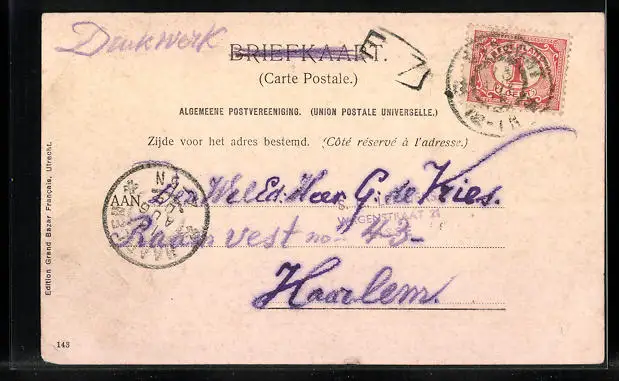 Drukwerk
BRIEFKAART.
(Carte Postale.)
ALGEMEENE POSTVEREENIGING. (UNION POSTALE UNIVERSELLE.)
Zijde voor het adres bestemd. (Côté réservé à l'adresse.)
AAN Den WelEd. Heer G. de Vries.
WAGENSTRAAT 21
Raamvest no 43-
Haarlem.
HAARLEM
Edition Grand Bazar Français, Utrecht.
143